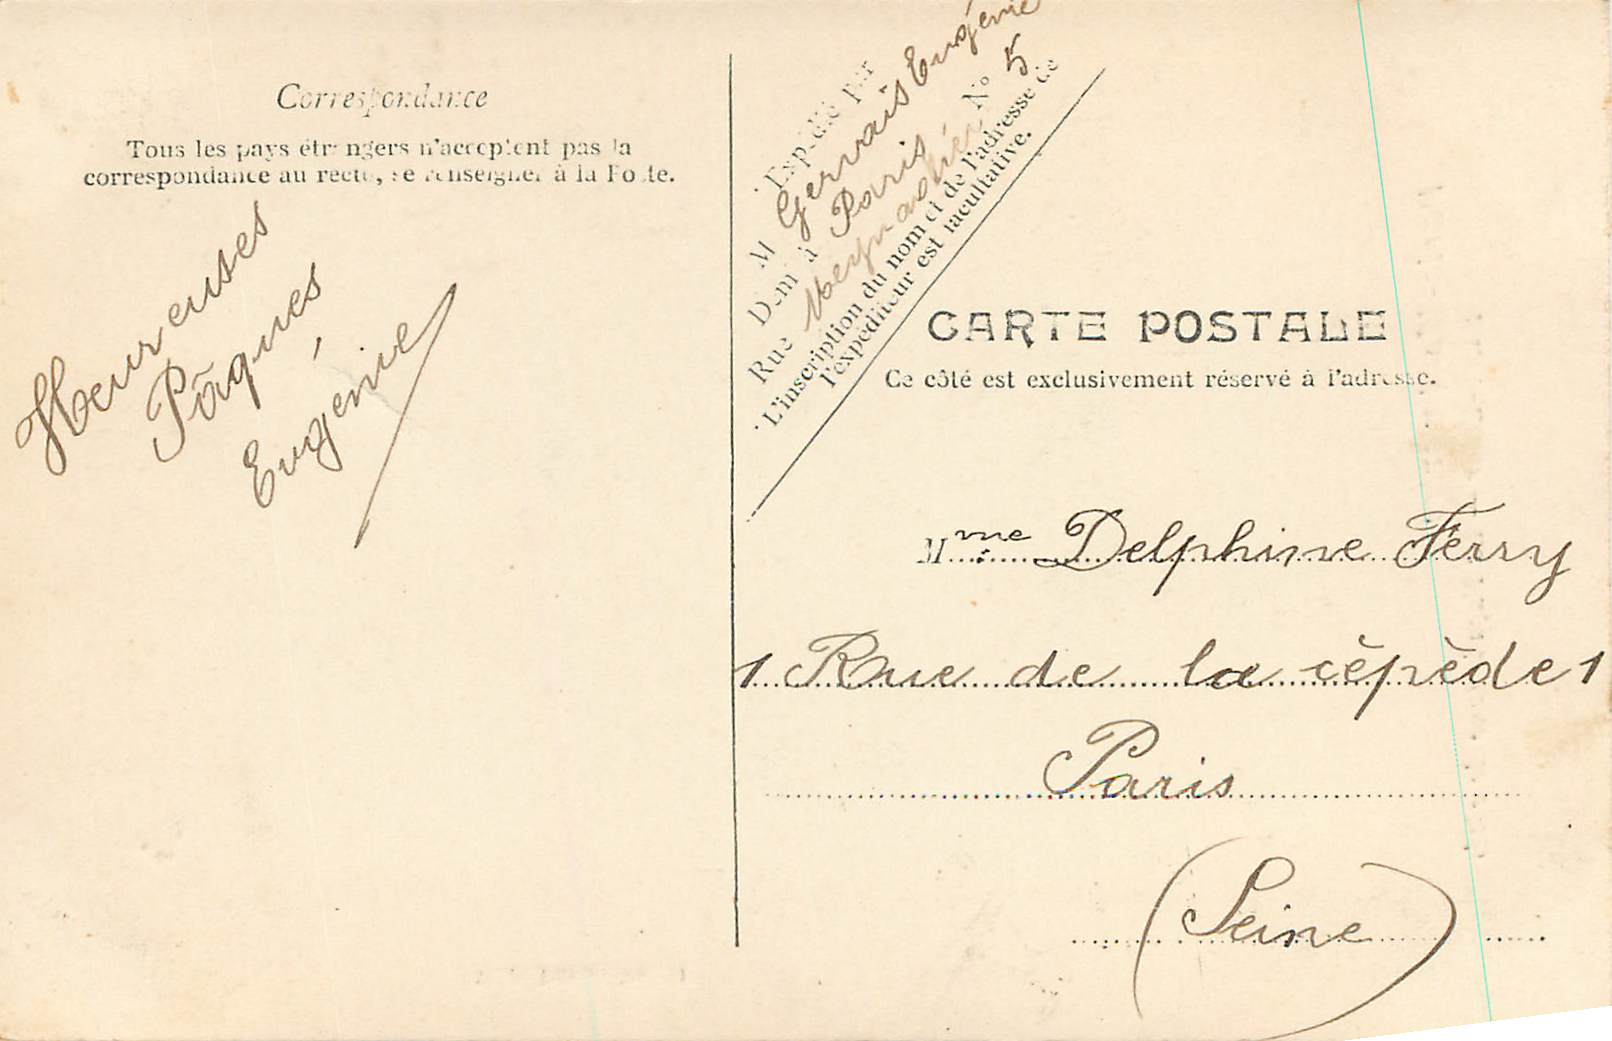 Correspondance
Tous les pays étrangers n'acceptent pas la
correspondance au recto, se renseigner à la Poste.
Heureuses
Pâques
Eugénie
Expédié par
M Gervais Eugénie
Dem à Paris
Rue N° 5
L'inscription du nom et de l'adresse de
l'expéditeur est facultative.
CARTE POSTALE
Ce côté est exclusivement réservé à l'adresse.
Mme Delphine Ferry
1 Rue de la cépède 1
Paris
(Seine)